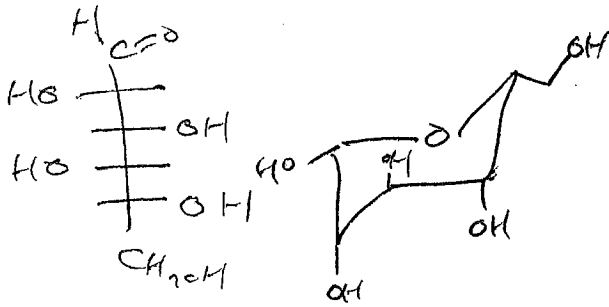 H
C=O
HO
OH
HO
OH
CH2OH
OH
O
HO
OH
OH
OH